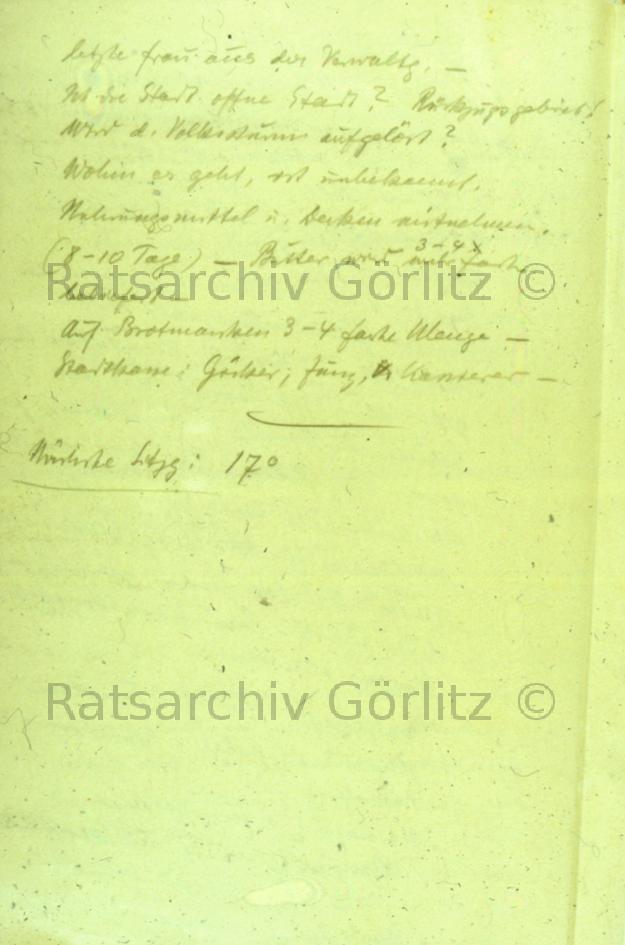 letzte Frau aus der Verwaltg. —
Ist die Stadt offne Stadt? Rückzugsgebiet!
Wird d. Volkssturm aufgelöst?
Wohin es geht, ist unbekannt.
Nahrungsmittel u. Decken mitnehmen.
3–4 x
(8–10 Tage) — Butter wird
Ratsarchiv Görlitz ©
Auf Brotmarken 3–4 fache Menge —
Stadtkasse:
Nächste Sitzg: 17°
Ratsarchiv Görlitz ©